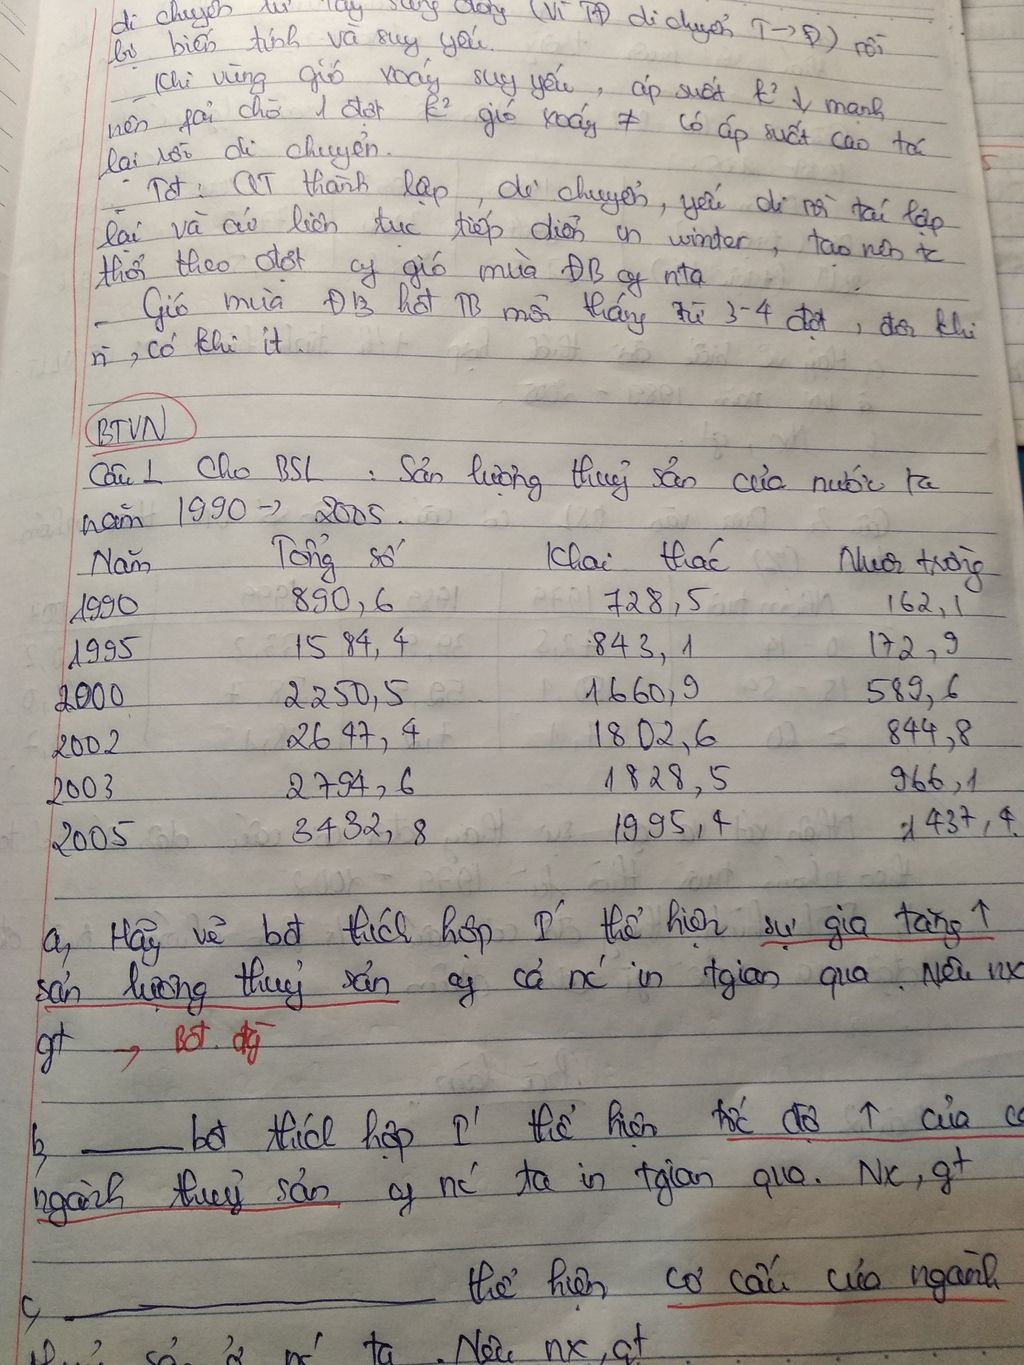 di chuyển từ Tây sang đông (vì TĐ di chuyển T → Đ) rồi
bị biến tính và suy yếu.
_ Khi vùng gió xoáy suy yếu, áp suất k² ↓ mạnh
nên fải chờ 1 đợt k² gió xoáy ≠ có áp suất cao trở
lại rồi di chuyển.
_ Tót: QT thành lập, di chuyển, yếu đi rồi tái lập
lại và cứ liên tục tiếp diễn in winter, tạo nên t/c
thổi theo đợt cy gió mùa ĐB cy nta
_ Gió mùa ĐB hđ TB mỗi tháng từ 3-4 đợt, đôi khi
n`, có khi ít.
BTVN
Câu 1 Cho BSL : Sản lượng thuỷ sản của nước ta
năm 1990 → 2005.
Năm Tổng số Khai thác Nuôi trồng
1990 890,6 728,5 162,1
1995 1584,4 843,1 172,9
2000 2250,5 1660,9 589,6
2002 2647,4 1802,6 844,8
2003 2794,6 1828,5 966,1
2005 3432,8 1995,4 1437,4
a, Hãy vẽ bđ thích hợp I' thể hiện sự gia tăng ↑
sản lượng thuỷ sản cy cả nc' in tgian qua. Nêu nx
gt → Bđt. đg
b, ____ bđ thích hợp I' thể hiện tốc độ ↑ của
ngành thuỷ sản cy nc' ta in tgian qua. Nx, gt
c, ____ thể hiện cơ cấu của ngành
thuỷ sản ở nc' ta. Nêu nx, gt